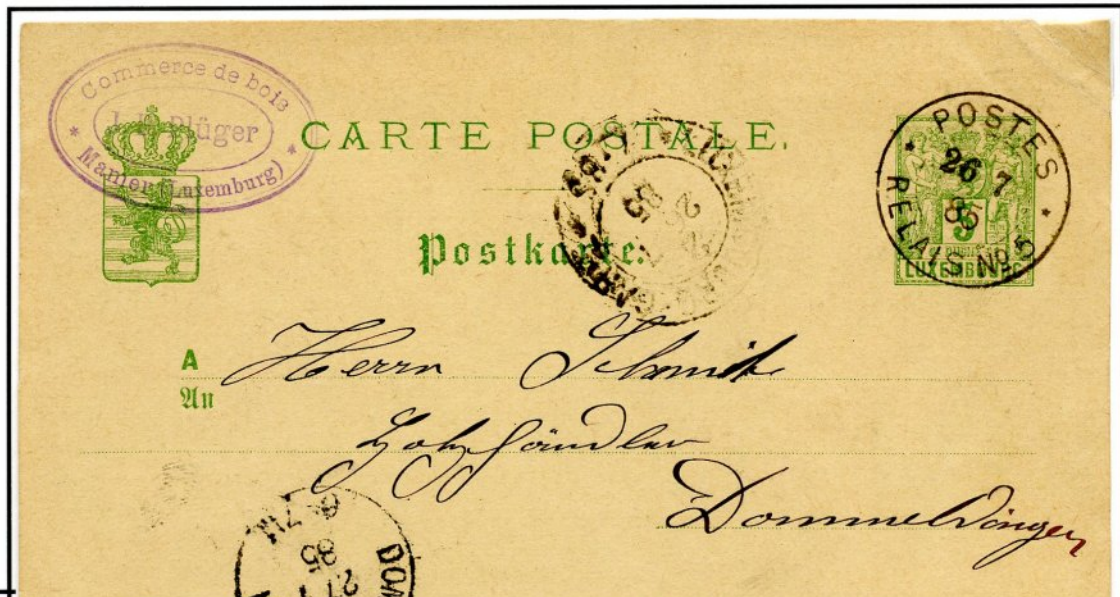 Commerce de bois
Plüger
Mamer (Luxemburg)
CARTE POSTALE.
Postkarte.
POSTES
26 7
85
RELAIS No. 5
5
LUXEMBOURG
A Herrn Schmit
An
Holzhändler
Dommeldingen
85
27
DOM